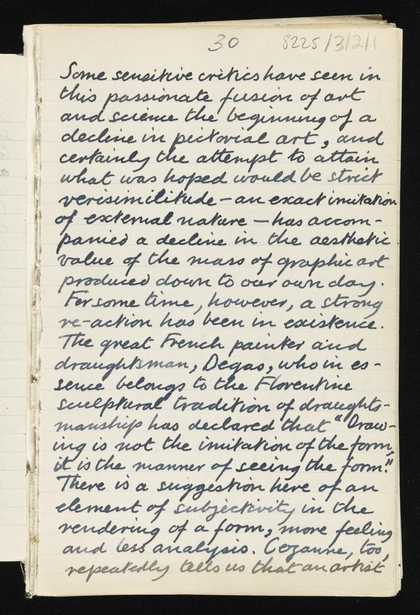 30 8225/3/2/1
Some sensitive critics have seen in
this passionate fusion of art
and science the beginning of a
decline in pictorial art, and
certainly the attempt to attain
what was hoped would be strict
verisimilitude - an exact imitation
of external nature - has accom-
panied a decline in the aesthetic
value of the mass of graphic art
produced down to our own day.
For some time, however, a strong
re-action has been in existence.
The great French painter and
draughtsman, Degas, who in es-
sence belongs to the Florentine
sculptural tradition of draughts-
manship has declared that "Draw-
ing is not the imitation of the form,
it is the manner of seeing the form."
There is a suggestion here of an
element of subjectivity in the
rendering of a form, more feeling
and less analysis. Cezanne, too,
repeatedly tells us that an artist